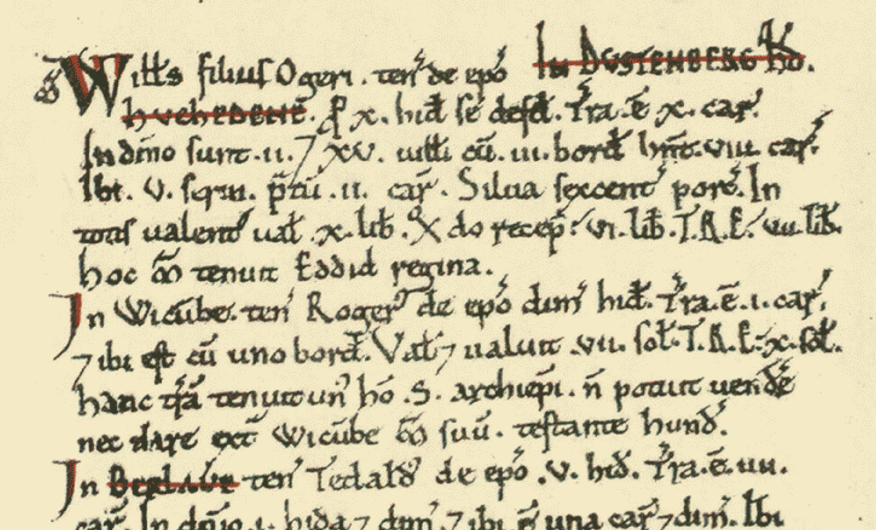 Ꝟ Witts filius Ogeri . ten̄ de ep̄o In DUSTENBERG H̄D.
huchedene. ꝓ x. hiđ se defđ. Tr̄a.ē x. car̄.
In dn̄io sunt .ii. ⁊ xv. uiłłi cū .iii. borđ hn̄t. viii. car̄.
Ibi. v. serui. p̄tū .ii. car̄. Silua sexcent̄ porc̄. In
totis ualent̄ uał .x. lib̄. Qdo recep̄: vi. lib̄. T.R.E: vii. lib̄.
hoc m̄ tenuit Eddid regina.
In Wicūbe. ten̄ Roger̄ de ep̄o dim̄ hiđ. Tr̄a.ē.i. car̄.
⁊ ibi est cū uno borđ. Vał ⁊ ualuit .vii. soł. T.R.E: x. soł.
hanc tr̄a tenuit un̄ h̄o .S. archiep̄i. n̄ potuit uendē
nec dare ext̄ Wicūbe m̄ suū. testante hund̄.
In ten̄ Tedald̄ de ep̄o .v. hiđ. Tr̄a.ē.
car̄. In dn̄io.i. hida ⁊ dim̄. ⁊ ibi ē una car̄ ⁊ dim̄. Ibi